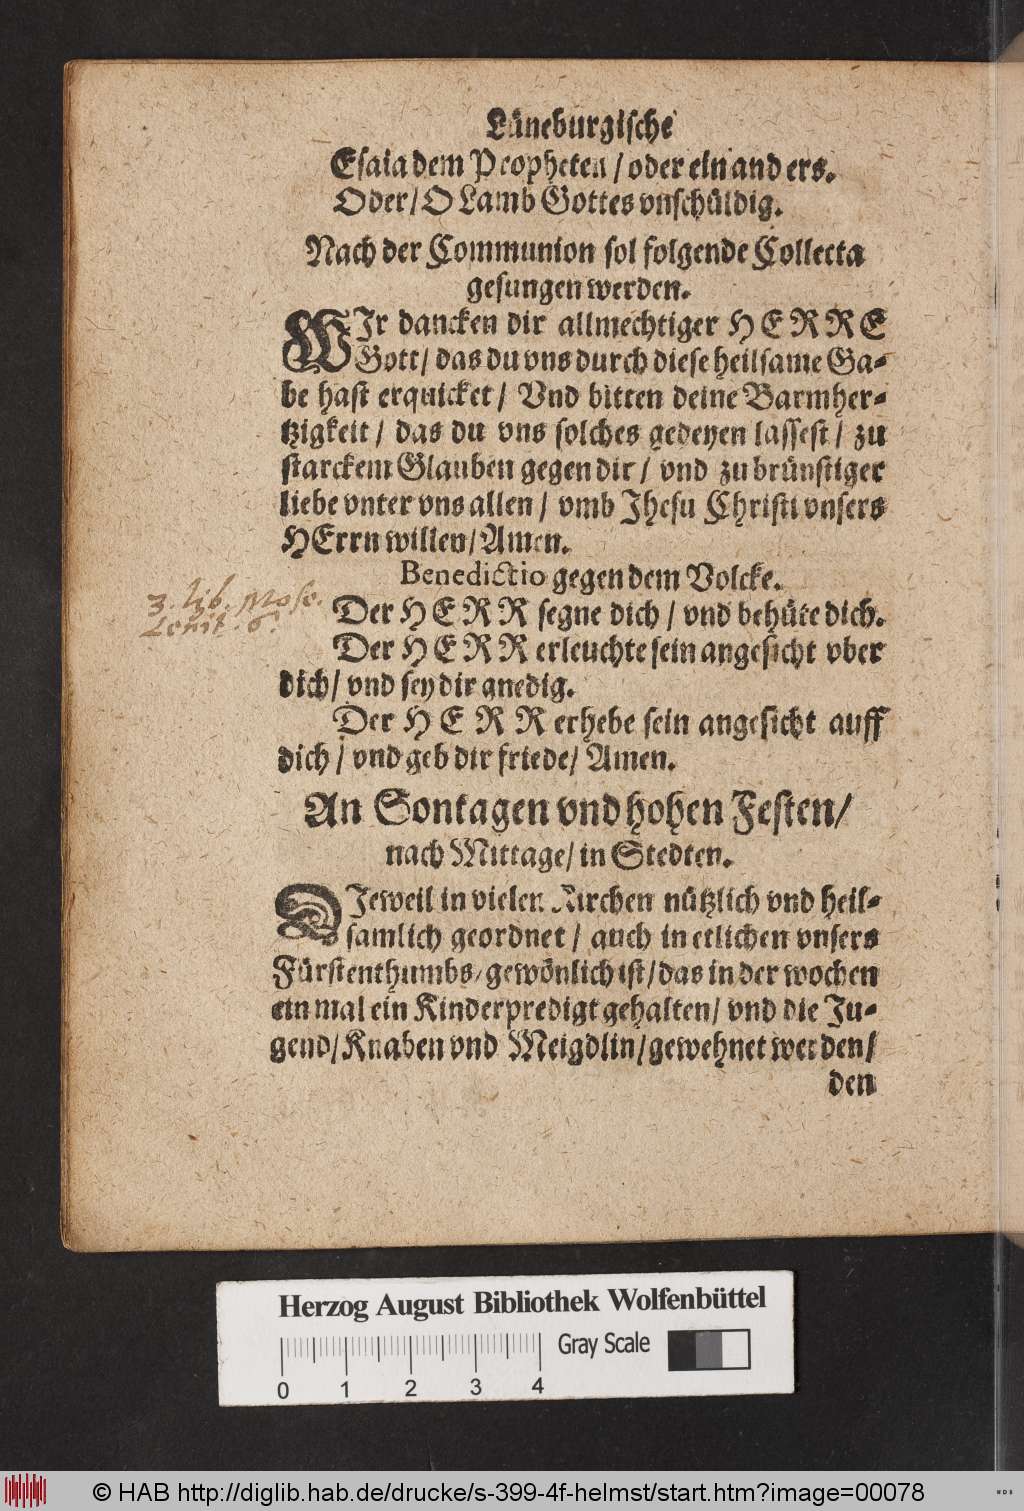 Lüneburgische
Esaia dem Propheten / oder ein anders.
Oder / O Lamb Gottes vnschüldig.
Nach der Communion sol folgende Collecta
gesungen werden.
WIr dancken dir allmechtiger HERRE
Gott / das du vns durch diese heilsame Ga-
be hast erquicket / Vnd bitten deine Barmher-
tzigkeit / das du vns solches gedeyen lassest / zu
starckem Glauben gegen dir / vnd zu brünstiger
liebe vnter vns allen / vmb Jhesu Christi vnsers
HErrn willen / Amen.
Benedictio gegen dem Volcke.
3. lib. Mose.
Levit. 6.
Der HERR segne dich / vnd behüte dich.
Der HERR erleuchte sein angesicht vber
dich / vnd sey dir gnedig.
Der HERR erhebe sein angesicht auff
dich / vnd geb dir friede / Amen.
An Sontagen vnd hohen Festen /
nach Mittage / in Stedten.
DJeweil in vielen Kirchen nützlich vnd heil-
samlich geordnet / auch in etlichen vnsers
Fürstenthumbs / gewönlich ist / das in der wochen
ein mal ein Kinderpredigt gehalten / vnd die Ju-
gend / Knaben vnd Meigdlin / gewehnet werden /
den
Herzog August Bibliothek Wolfenbüttel
Gray Scale
0 1 2 3 4
© HAB http://diglib.hab.de/drucke/s-399-4f-helmst/start.htm?image=00078